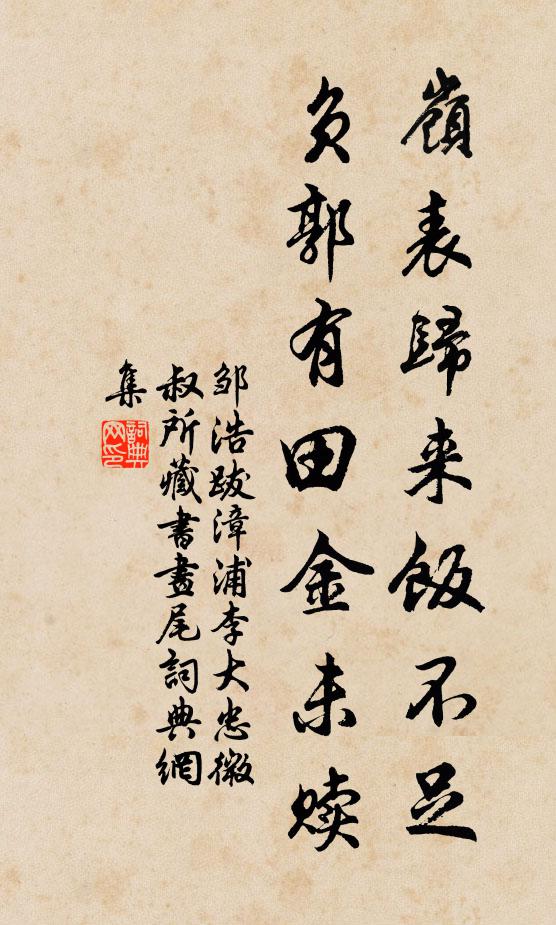 嶺表歸来飯不足
負郭有田金未贖
邹浩跋漳浦李大忠微
叔所藏書畫尾詞典網
集
詞典网印